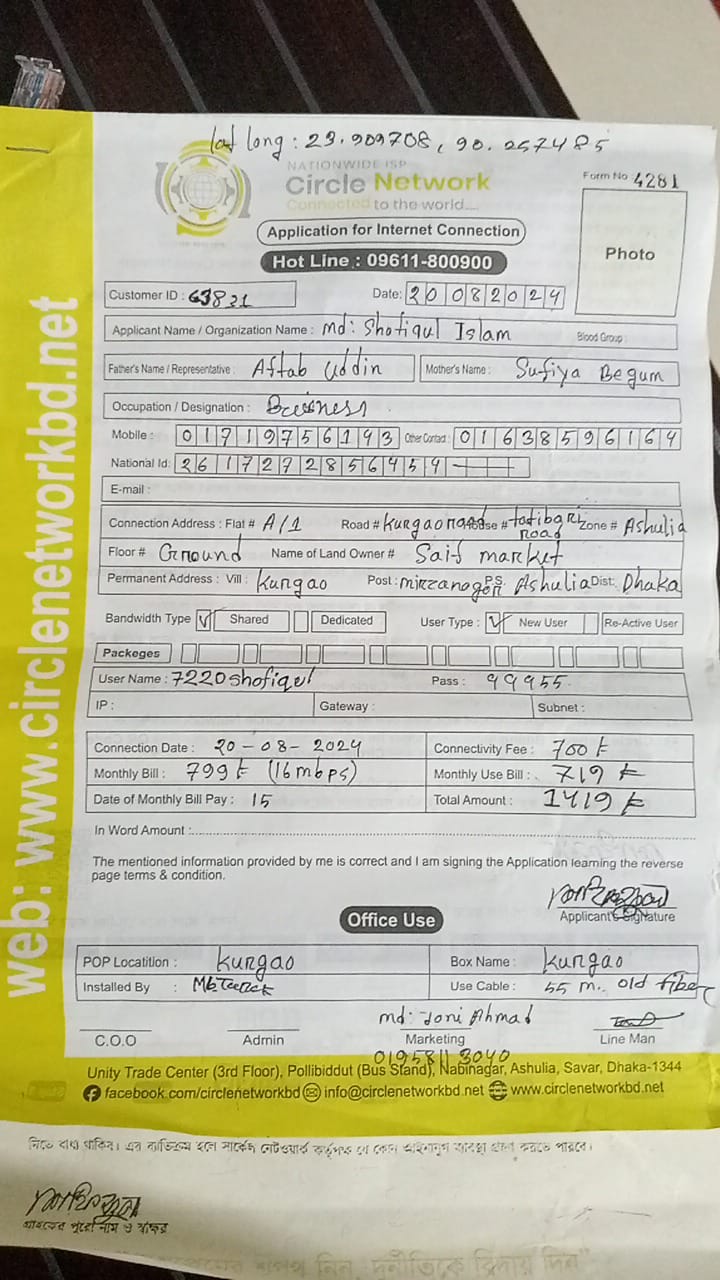 lat long : 23.909708, 90.257485
NATIONWIDE ISP
Circle Network
Connected to the world....
Form No 4281
Application for Internet Connection
Hot Line : 09611-800900
Photo
Customer ID : 63821
Date: 20082024
Applicant Name / Organization Name : md: Shofiqul Islam Blood Group :
Father's Name / Representative : Aftab uddin Mother's Name : Sufiya Begum
Occupation / Designation : Business
Mobile : 01719756193 Other Contact : 01638596164
National Id: 2617272856454
E-mail :
Connection Address : Flat # A/1 Road # Kurgao road House # tatibari road Zone # Ashulia
Floor # Ground Name of Land Owner # Saif market
Permanent Address : Vill : Kurgao Post : mirzanagor P.S. Ashulia Dist: Dhaka
Bandwidth Type Shared Dedicated User Type : New User Re-Active User
Packeges
User Name : 7220shofiqul Pass : 99955
IP : Gateway : Subnet :
Connection Date : 20-08-2024 Connectivity Fee : 700 t
Monthly Bill : 799 t (16 mbps) Monthly Use Bill : 719 t
Date of Monthly Bill Pay : 15 Total Amount : 1419 t
In Word Amount :
The mentioned information provided by me is correct and I am signing the Application learning the reverse
page terms & condition.
Applicant's Signature
Office Use
POP Locatition : Kurgao Box Name : Kurgao
Installed By : Use Cable : 55 m.. old fiber
md: Joni Ahmad
C.O.O Admin Marketing Line Man
01958113040
Unity Trade Center (3rd Floor), Pollibiddut (Bus Stand), Nabinagar, Ashulia, Savar, Dhaka-1344
facebook.com/circlenetworkbd info@circlenetworkbd.net www.circlenetworkbd.net
web: www.circlenetworkbd.net
দিতে বাধ্য থাকিব। এর ব্যতিক্রম হলে সার্কেল নেটওয়ার্ক কর্তৃপক্ষ যে কোন আইনানুগ ব্যবস্থা গ্রহণ করতে পারবে।
গ্রাহকের পুরো নাম ও স্বাক্ষর
শপথ নিন, দুর্নীতিকে বিদায় দিন"